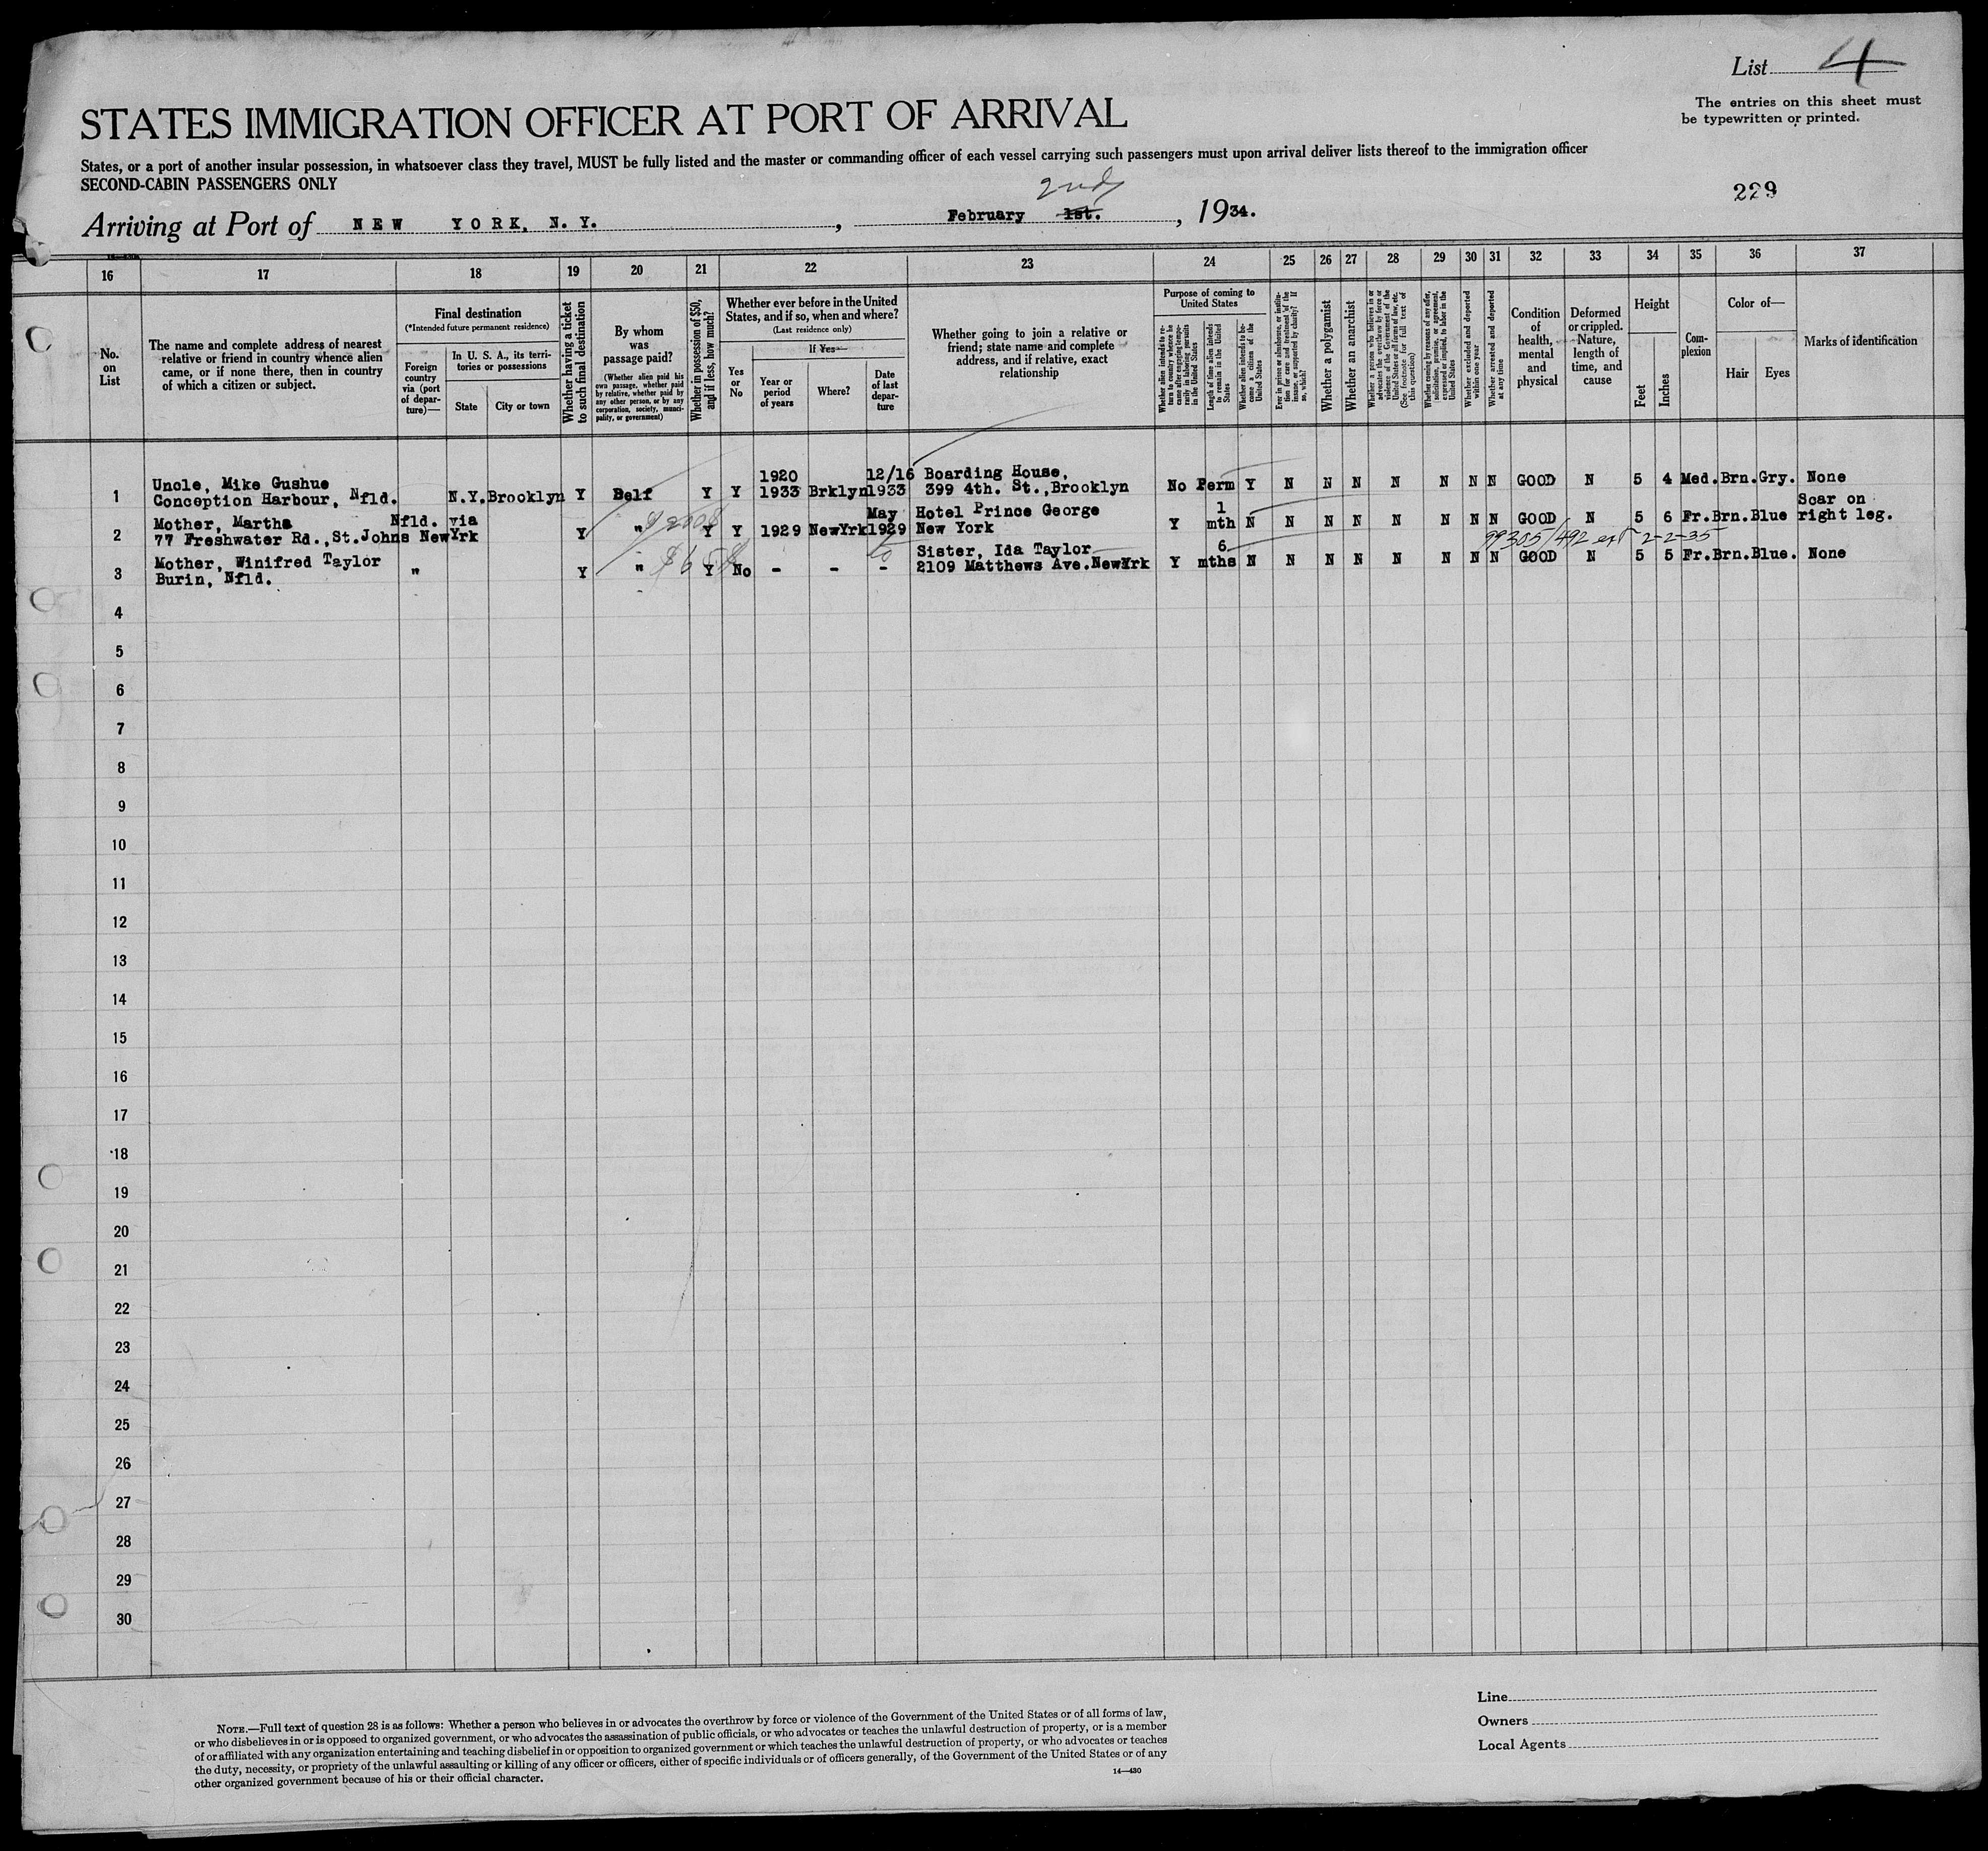 List 4
The entries on this sheet must
be typewritten or printed.
STATES IMMIGRATION OFFICER AT PORT OF ARRIVAL
States, or a port of another insular possession, in whatsoever class they travel, MUST be fully listed and the master or commanding officer of each vessel carrying such passengers must upon arrival deliver lists thereof to the immigration officer
SECOND-CABIN PASSENGERS ONLY
229
2nd
Arriving at Port of NEW YORK, N. Y. , February 1st. , 1934.
16 17 18 19 20 21 22 23 24 25 26 27 28 29 30 31 32 33 34 35 36 37
No.
on
List
The name and complete address of nearest
relative or friend in country whence alien
came, or if none there, then in country
of which a citizen or subject.
Final destination
(*Intended future permanent residence)
Foreign
country
via (port
of depar-
ture)—
In U. S. A., its terri-
tories or possessions
State
City or town
Whether having a ticket
to such final destination
By whom
was
passage paid?
(Whether alien paid his
own passage, whether paid
by relative, whether paid by
any other person, or by any
corporation, society, munici-
pality, or government)
Whether in possession of $50,
and if less, how much?
Whether ever before in the United
States, and if so, when and where?
(Last residence only)
If Yes—
Yes
or
No
Year or
period
of years
Where?
Date
of last
depar-
ture
Whether going to join a relative or
friend; state name and complete
address, and if relative, exact
relationship
Purpose of coming to
United States
Whether alien intends to re-
turn to country whence he
came after engaging tempo-
rarily in laboring pursuits
in the United States
Length of time alien intends
to remain in the United
States
Whether alien intends to be-
come a citizen of the
United States
Ever in prison or almshouse, or institu-
tion for care and treatment of the
insane, or supported by charity? If
so, which?
Whether a polygamist
Whether an anarchist
Whether a person who believes in or
advocates the overthrow by force or
violence of the Government of the
United States or all forms of law, etc.
(See footnote for full text of
this question)
Whether coming by reasons of any offer,
solicitation, promise, or agreement,
expressed or implied, to labor in the
United States
Whether excluded and deported
within one year
Whether arrested and deported
at any time
Condition
of
health,
mental
and
physical
Deformed
or crippled.
Nature,
length of
time, and
cause
Height
Feet
Inches
Com-
plexion
Color of—
Hair
Eyes
Marks of identification
1920 12/16 Boarding House,
Uncle, Mike Gushue
1 Conception Harbour, Nfld. N.Y. Brooklyn Y Self Y Y 1933 Brklyn 1933 399 4th. St., Brooklyn No Perm Y N N N N N N N GOOD N 5 4 Med. Brn. Gry. None
Mother, Martha Nfld. via $200 May Hotel Prince George 1 Scar on
2 77 Freshwater Rd., St.Johns NewYrk Y " Y Y 1929 NewYrk 1929 New York Y mth N N N N N N N N GOOD N 5 6 Fr. Brn. Blue right leg.
99305/492 ext 2-2-35
Mother, Winifred Taylor Sister, Ida Taylor 6
3 Burin, Nfld. " Y " Y No - - - 2109 Matthews Ave. NewYrk Y mths N N N N N N N N GOOD N 5 5 Fr. Brn. Blue. None
4
5
6
7
8
9
10
11
12
13
14
15
16
17
18
19
20
21
22
23
24
25
26
27
28
29
30
NOTE.—Full text of question 28 is as follows: Whether a person who believes in or advocates the overthrow by force or violence of the Government of the United States or of all forms of law,
or who disbelieves in or is opposed to organized government, or who advocates the assassination of public officials, or who advocates or teaches the unlawful destruction of property, or is a member
of or affiliated with any organization entertaining and teaching disbelief in or opposition to organized government or which teaches the unlawful destruction of property, or who advocates or teaches
the duty, necessity, or propriety of the unlawful assaulting or killing of any officer or officers, either of specific individuals or of officers generally, of the Government of the United States or of any
other organized government because of his or their official character.
14—430
Line
Owners
Local Agents